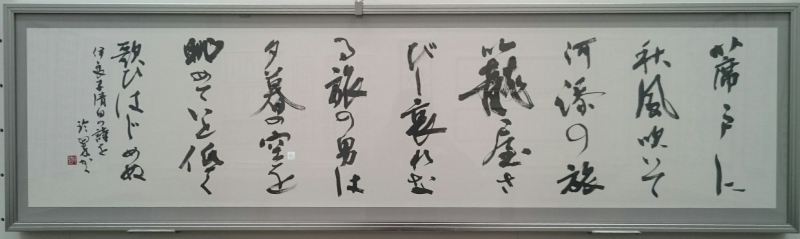 蓆戸に
秋風吹いて
河添の旅
籠屋さ
びし哀れな
る旅の男は
夕暮の空を
眺めていと低く
歌ひはじめぬ
伊良子清白の詩を